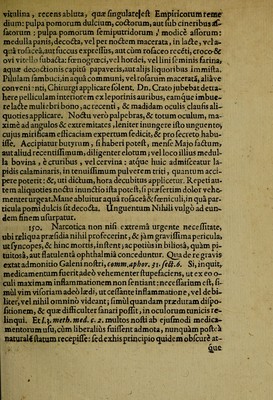 vitulina, recens abluta, quæ singularē est Empiricorum reme
dium: pulpa pomorum dulcium, coctorum, aut sub cineribus as
satorum: pulpa pomorum semiputridorum: modicè assorum:
medulla panis, decocta, vel per noctem macerata, in lacte, vel a-
quâ rosaceâ, aut succus expressus, aut cum rosaceo recēti, croco &
ovi vitello subacta: fœnogræci, vel hordei, vel lini seminis farina,
aquæ decoctionis capitū papaveris, aut alijs liquoribus immista.
Pilulam sambuci, in aquâ communi, vel rosarum macerat, alúive
conveni-nti, Chirurgi applicare solent. Dn. Crato jubebat detra-
here pelliculam interiorem ex leporinis auribus, eamque imbue-
re lacte mulie bri bono, ac recenti, & madidam oculis clausis ali-
quoties applicare. Noctu verò palpebras, & totum oculum, ma-
ximè ad angulos & extremitates, leniter inungere isto unguento,
cujus mirificam efficaciam expertum se dicit, & pro secreto habu-
isse. Accipiatur butyrum, si haberi potest, mense Majo factum,
aut aliud recentissimum, diligenter elotum; vel loco illius medul-
la bovina, è cruribus, vel cervina: atque huic admisceatur la-
pidis calaminaris, in tenuissimum pulverem triti, quantum acci-
pere poterit: &, uti dictum, hora decubitus applicetur. Repeti au-
tem aliquoties noctu inunctio ista potest, si præsertim dolor vehe-
menter urgeat. Mane abluitur aquâ rosaceâ & fœniculi, in quâ par-
ticula pomi dulcis sit decocta. Unguentum Nihili vulgò ad eun-
dem finem usurpatur.
10. Narcotica non nisi extremâ urgente necessitate,
ubi reliqua præsidia nihil profecerint, & jam gravissima pericula
ut syncopes, & hinc mortis, instent; ac potius in biliosâ, quàm pi-
tuitosâ, aut flatulentâ ophthalmiâ conceduntur. Qua de re gravis
extat admonitio Galeni nostri, comm. aphor. 31. sect. 6. Si, inquit,
medicamentum fuerit adeò vehementer stupefaciens, ut ex eo o-
culi maximam inflammationem non sentiant: necessarium est, si-
mul vim visoriam adeò lædi, ut cessante inflammatione, vel debi-
liter, vel nihil omninò videant; simul quandam præduram dispo-
sitionem, & quæ difficulter sanari possit, in oculorum tunicis re-
linqui. Et l. 3. meth. med. c. 2. multos nosti ab ejusmodi medica-
mentorum usu, cùm liberaliùs fuissent admota, nunquam postea
naturalē statum recepisse: sed ex his principio quidem obscurè at-
que